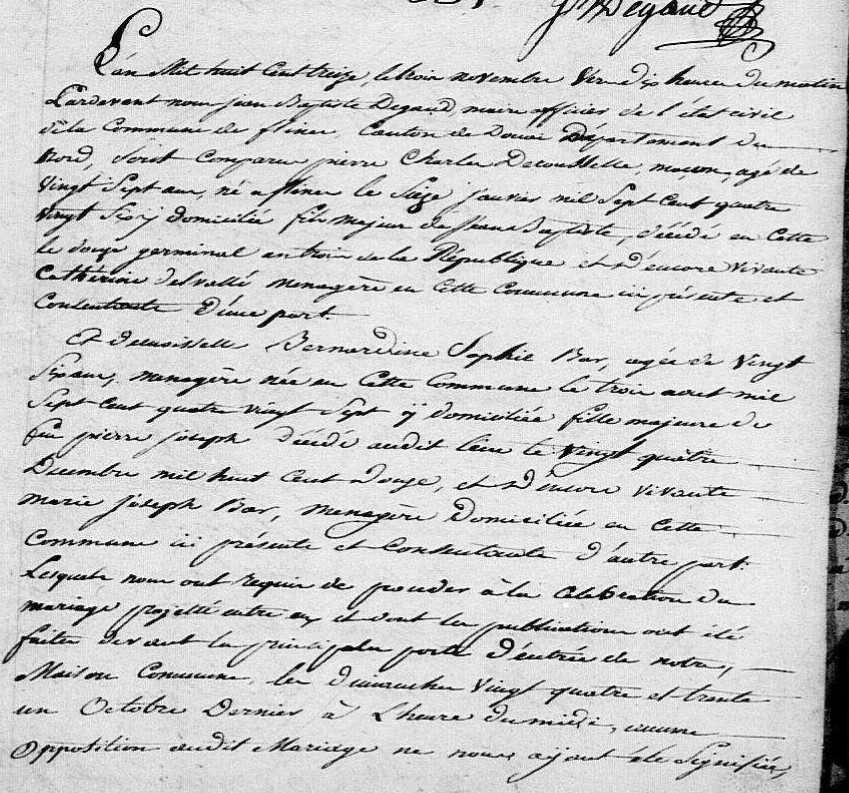 Jn Bte Degaud
L'an Mil huit Cent treize, le trois novembre vers dix heures du matin
Pardevant nous jean Baptiste Degaud, maire officier de l'état civil
de la Commune de flines, Canton de Douai Département du
Nord, soient comparu pierre Charles Detousselle, maçon, agé de
Vingt Sept ans, né a flines le Seize janvier mil Sept Cent quatre
Vingt Six y domicilié fils majeur de Jean Baptiste, décédé en Cette
le douze germinal an trois de la République et d'encore vivante
Cathérine delvallé menagère en Cette Commune ici présente et
Consentante d'une part.
Et demoiselle Bernardine Sophie Bar, agée de Vingt
Six ans, menagère née en Cette Commune le trois aout mil
Sept Cent quatre vingt Sept y domiciliée fille majeure de
feu pierre joseph décédé audit lieu le Vingt quatre
Decembre mil huit Cent douze, et d'encore vivante
marie joseph Bar, menagère Domiciliée en Cette
Commune ici présente et Consentante d'autre part.
Lesquels nous ont requis de procéder à la célébration du
mariage projetté entre eux et dont les publications ont été
faites devant la principale porte d'entrée de notre,
Maison Commune, les dimanches Vingt quatre et trente
un Octobre Dernier à L'heure du midi, aucune
Opposition audit Mariage ne nous ayant été Signifiée,